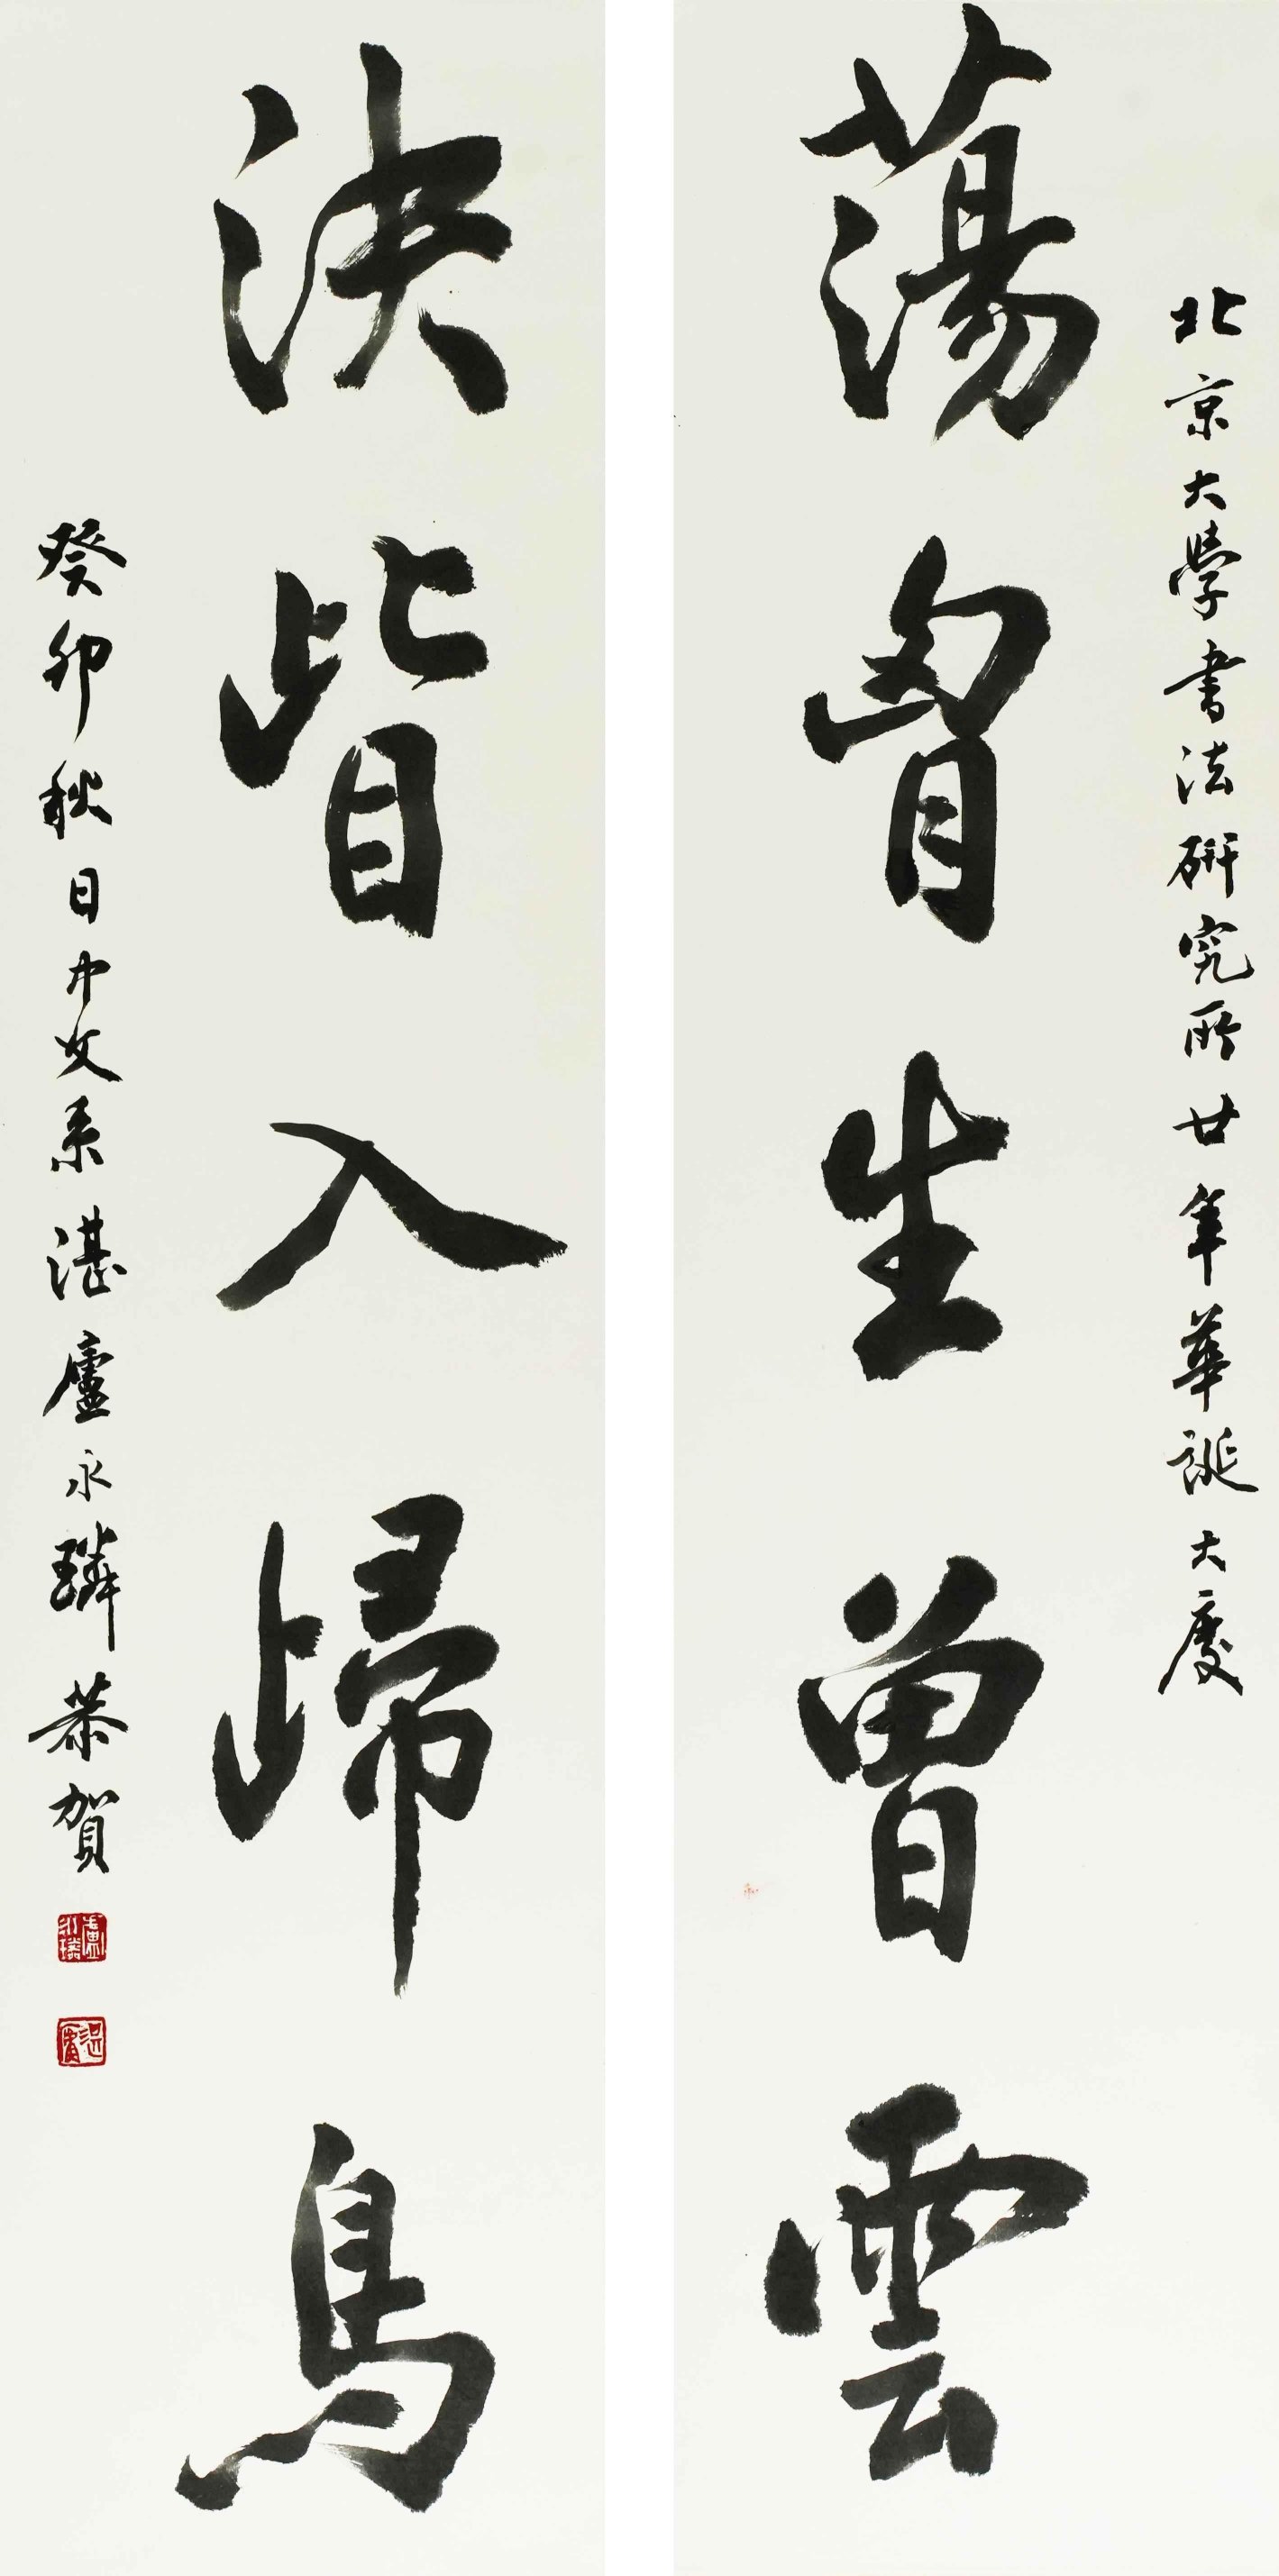 北京大學書法研究所廿年華誕大慶
蕩胷生曾雲
決眥入歸鳥
癸卯秋日中文系湛廬永璘恭賀